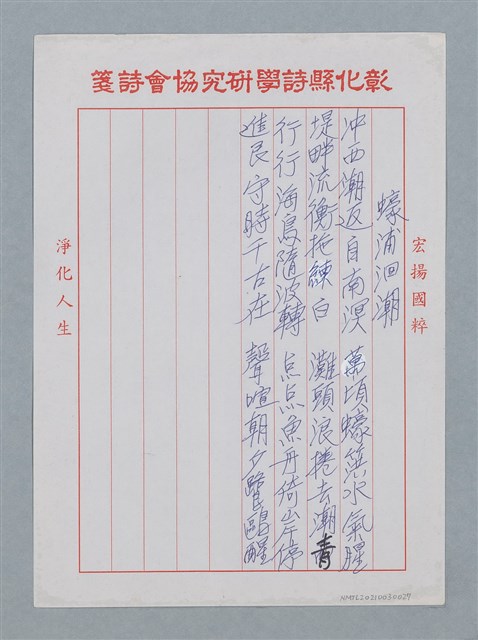 彰化縣詩學研究協會詩箋
宏揚國粹
蠔浦洄潮
冲西潮返自南溟 萬頃蠔篊水氣腥
堤畔流衡拖練白 灘頭浪捲去潮青
行行海鳥隨波轉 点点魚舟倚岸停
進艮守時千古在 聲喧朝夕醒
淨化人生
NMTL20210030027